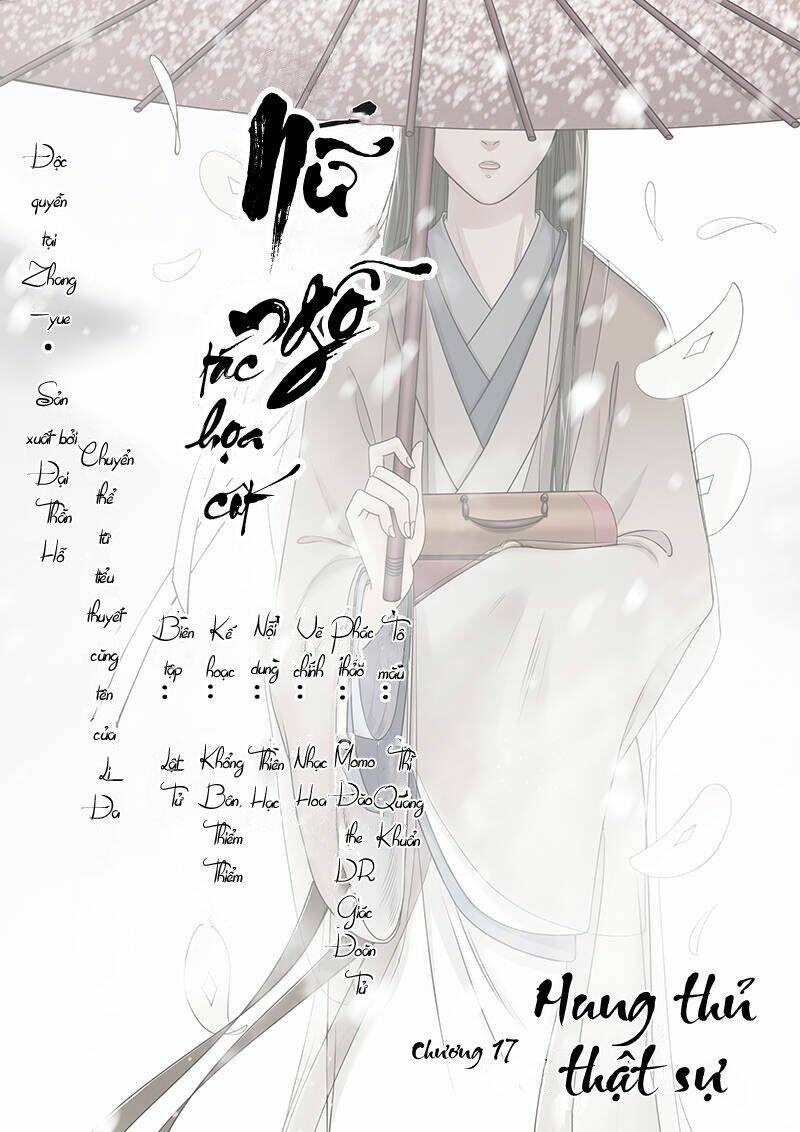 Nữ
ngỗ
tác
họa
cốt
Độc
quyền
tại
Zhang
-yue
•
Sản
xuất bởi
Đại
Thần
Hỗ
Chuyển
thể
từ
tiểu
thuyết
cùng
tên
của
Li
Đa
Biên
tập
:
Lật
Tử
Kế
hoạc
:
Khổng
Bân,
Thiểm
Thiểm
Nội
dung
:
Thiên
Hạc
Vẽ
chính
:
Nhạc
Hoa
Phác
thảo
:
Momo
Đào
the
DR
Giác
Đoàn
Tử
Tô
màu
:
Thì
Quang
Khuẩn
Chương 17
Hung thủ
thật sự